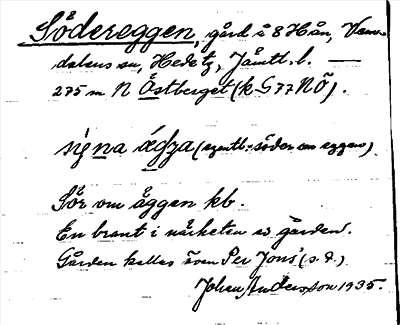 Södereggen, gård i 8 Hån, Vem-
dalens sn, Hede tg, Jämtl. l. —
275 m N Åstberget (k G 77 NÖ).
(egentl. söder om eggen)
Sör om äggen kb.
En brant i närheten av gården.
Gården kallas även Per Jons' (s. d.).
Johan Andersson 1935.